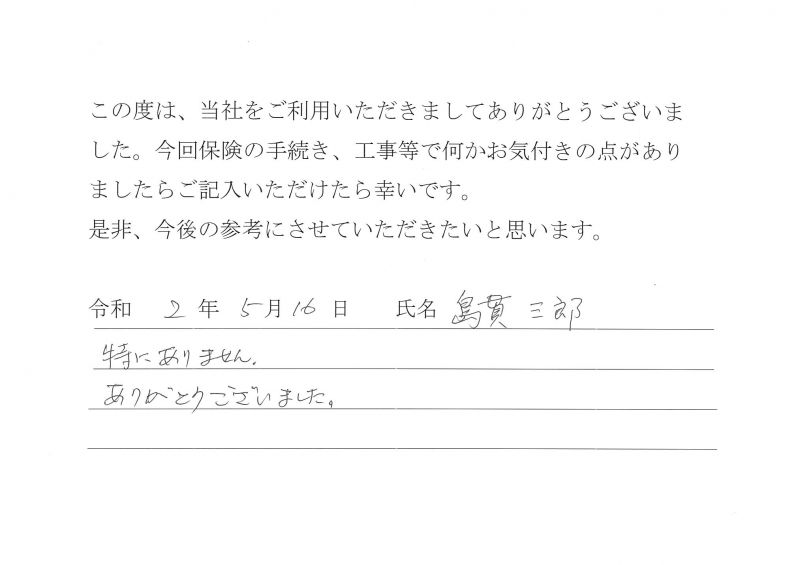 この度は、当社をご利用いただきましてありがとうございま
した。今回保険の手続き、工事等で何かお気付きの点があり
ましたらご記入いただけたら幸いです。
是非、今後の参考にさせていただきたいと思います。
令和 2 年 5月16 日 氏名 島貫 三郎
特にありません。
ありがとうございました。